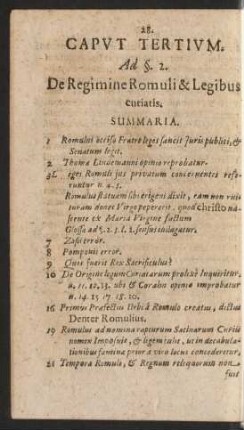 28.
CAPVT TERTIVM.
Ad §. 2.
De Regimine Romuli & Legibus
curiatis.
SUMMARIA.
1 Romulus occiso Fratre leges sancit Juris publici, &
Senatum legit.
2 Thomæ Lindemanni opinio reprobatur.
3 Leges Romuli jus privatum concernentes refe-
runtur n. 4. 5.
Romulus statuam sibi erigens dixit, eam non rui-
turam donec Virgo pepererit, quod Christo na-
scente ex Maria Virgine factum
Glossa ad §. 2. j. l. 2.
7 Zasii error.
8 Pomponii error.
9 Quis fuerit Rex Sacrificulus?
10 De Origine legum Curiatarum prolixè Inquiritur,
n. 11. 12. 13. ubi & Corasii opinio improbatur
n. 14. 15. 17. 18. 10.
16 Primus Præfectus Urbis à Romulo creatus, dictus
Denter Romulius.
19 Romulus ad nomina raptarum Sabinarum Curiis
nomen Imposuit, & legem tulit, ut in decubula-
tionibus fœmina prior à viro locus concederetur.
21 Tempora Romuli, & Regnum reliquorum non
fuit